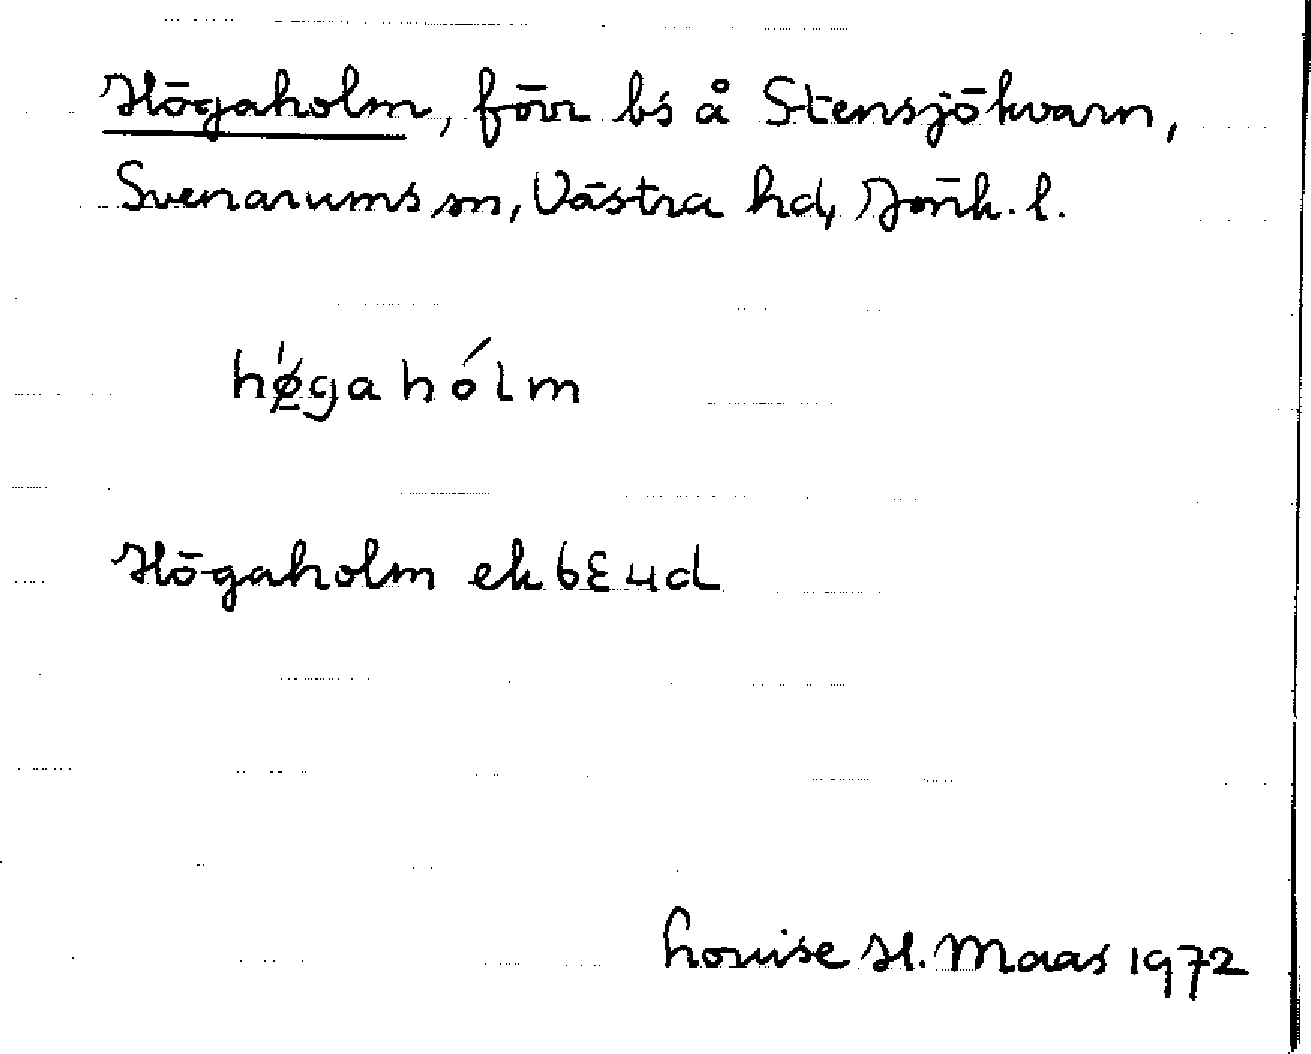 Högaholm, förr bs å Stensjökvarn,
Svenarums sn, Västra hd, Jönk. l.
hø̀gahólm
Högaholm ek 6E4d
Louise H. Maas 1972